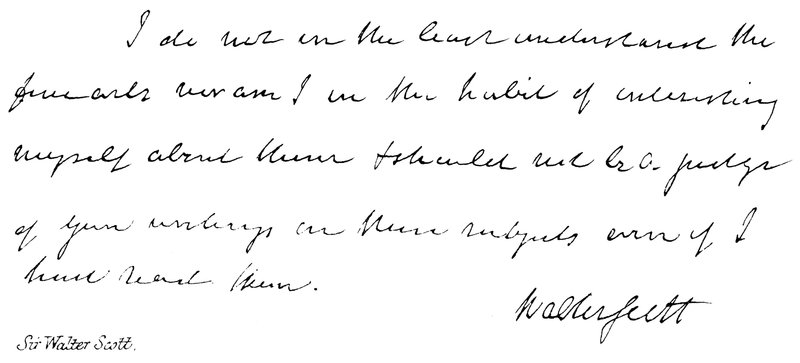 I do not in the least understand the
fine arts nor am I in the habit of interesting
myself about them & should not be a judge
of your writings on these subjects even if I
had read them.
Walter Scott
Sir Walter Scott.